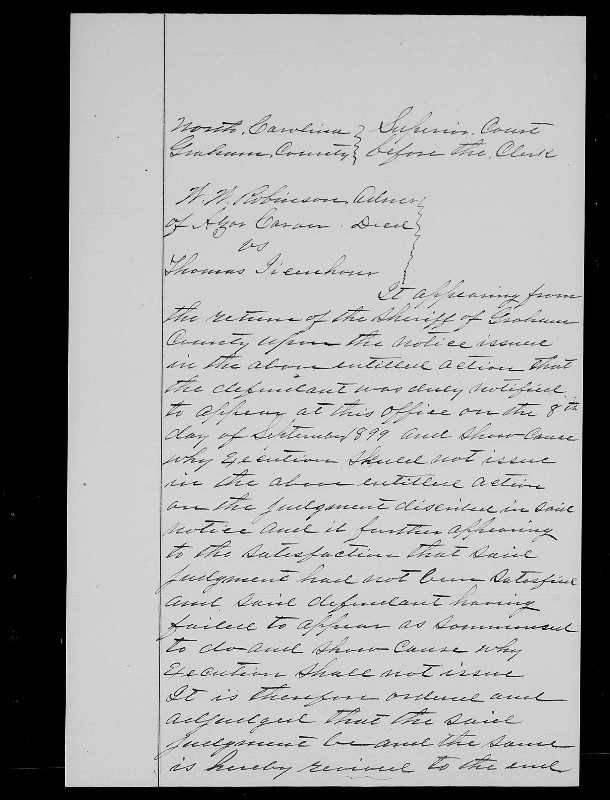 North Carolina } Superior Court
Graham County } before the Clerk
W. W. Robinson Admr
of Azor Carver Decd
vs
Thomas Isenhour
It appearing from
the return of the Sheriff of Graham
County upon the notice issued
in the above entitled action that
the defendant was duly notified
to appear at this office on the 8th
day of September 1899 and show cause
why Execution should not issue
in the above entitled action
on the judgment described in said
notice and it further appearing
to the satisfaction that said
judgment had not been satisfied
and said defendant having
failed to appear as summoned
to do and show cause why
Execution shall not issue
It is therefore ordered and
adjudged that the said
judgment be and the same
is hereby revived to the end